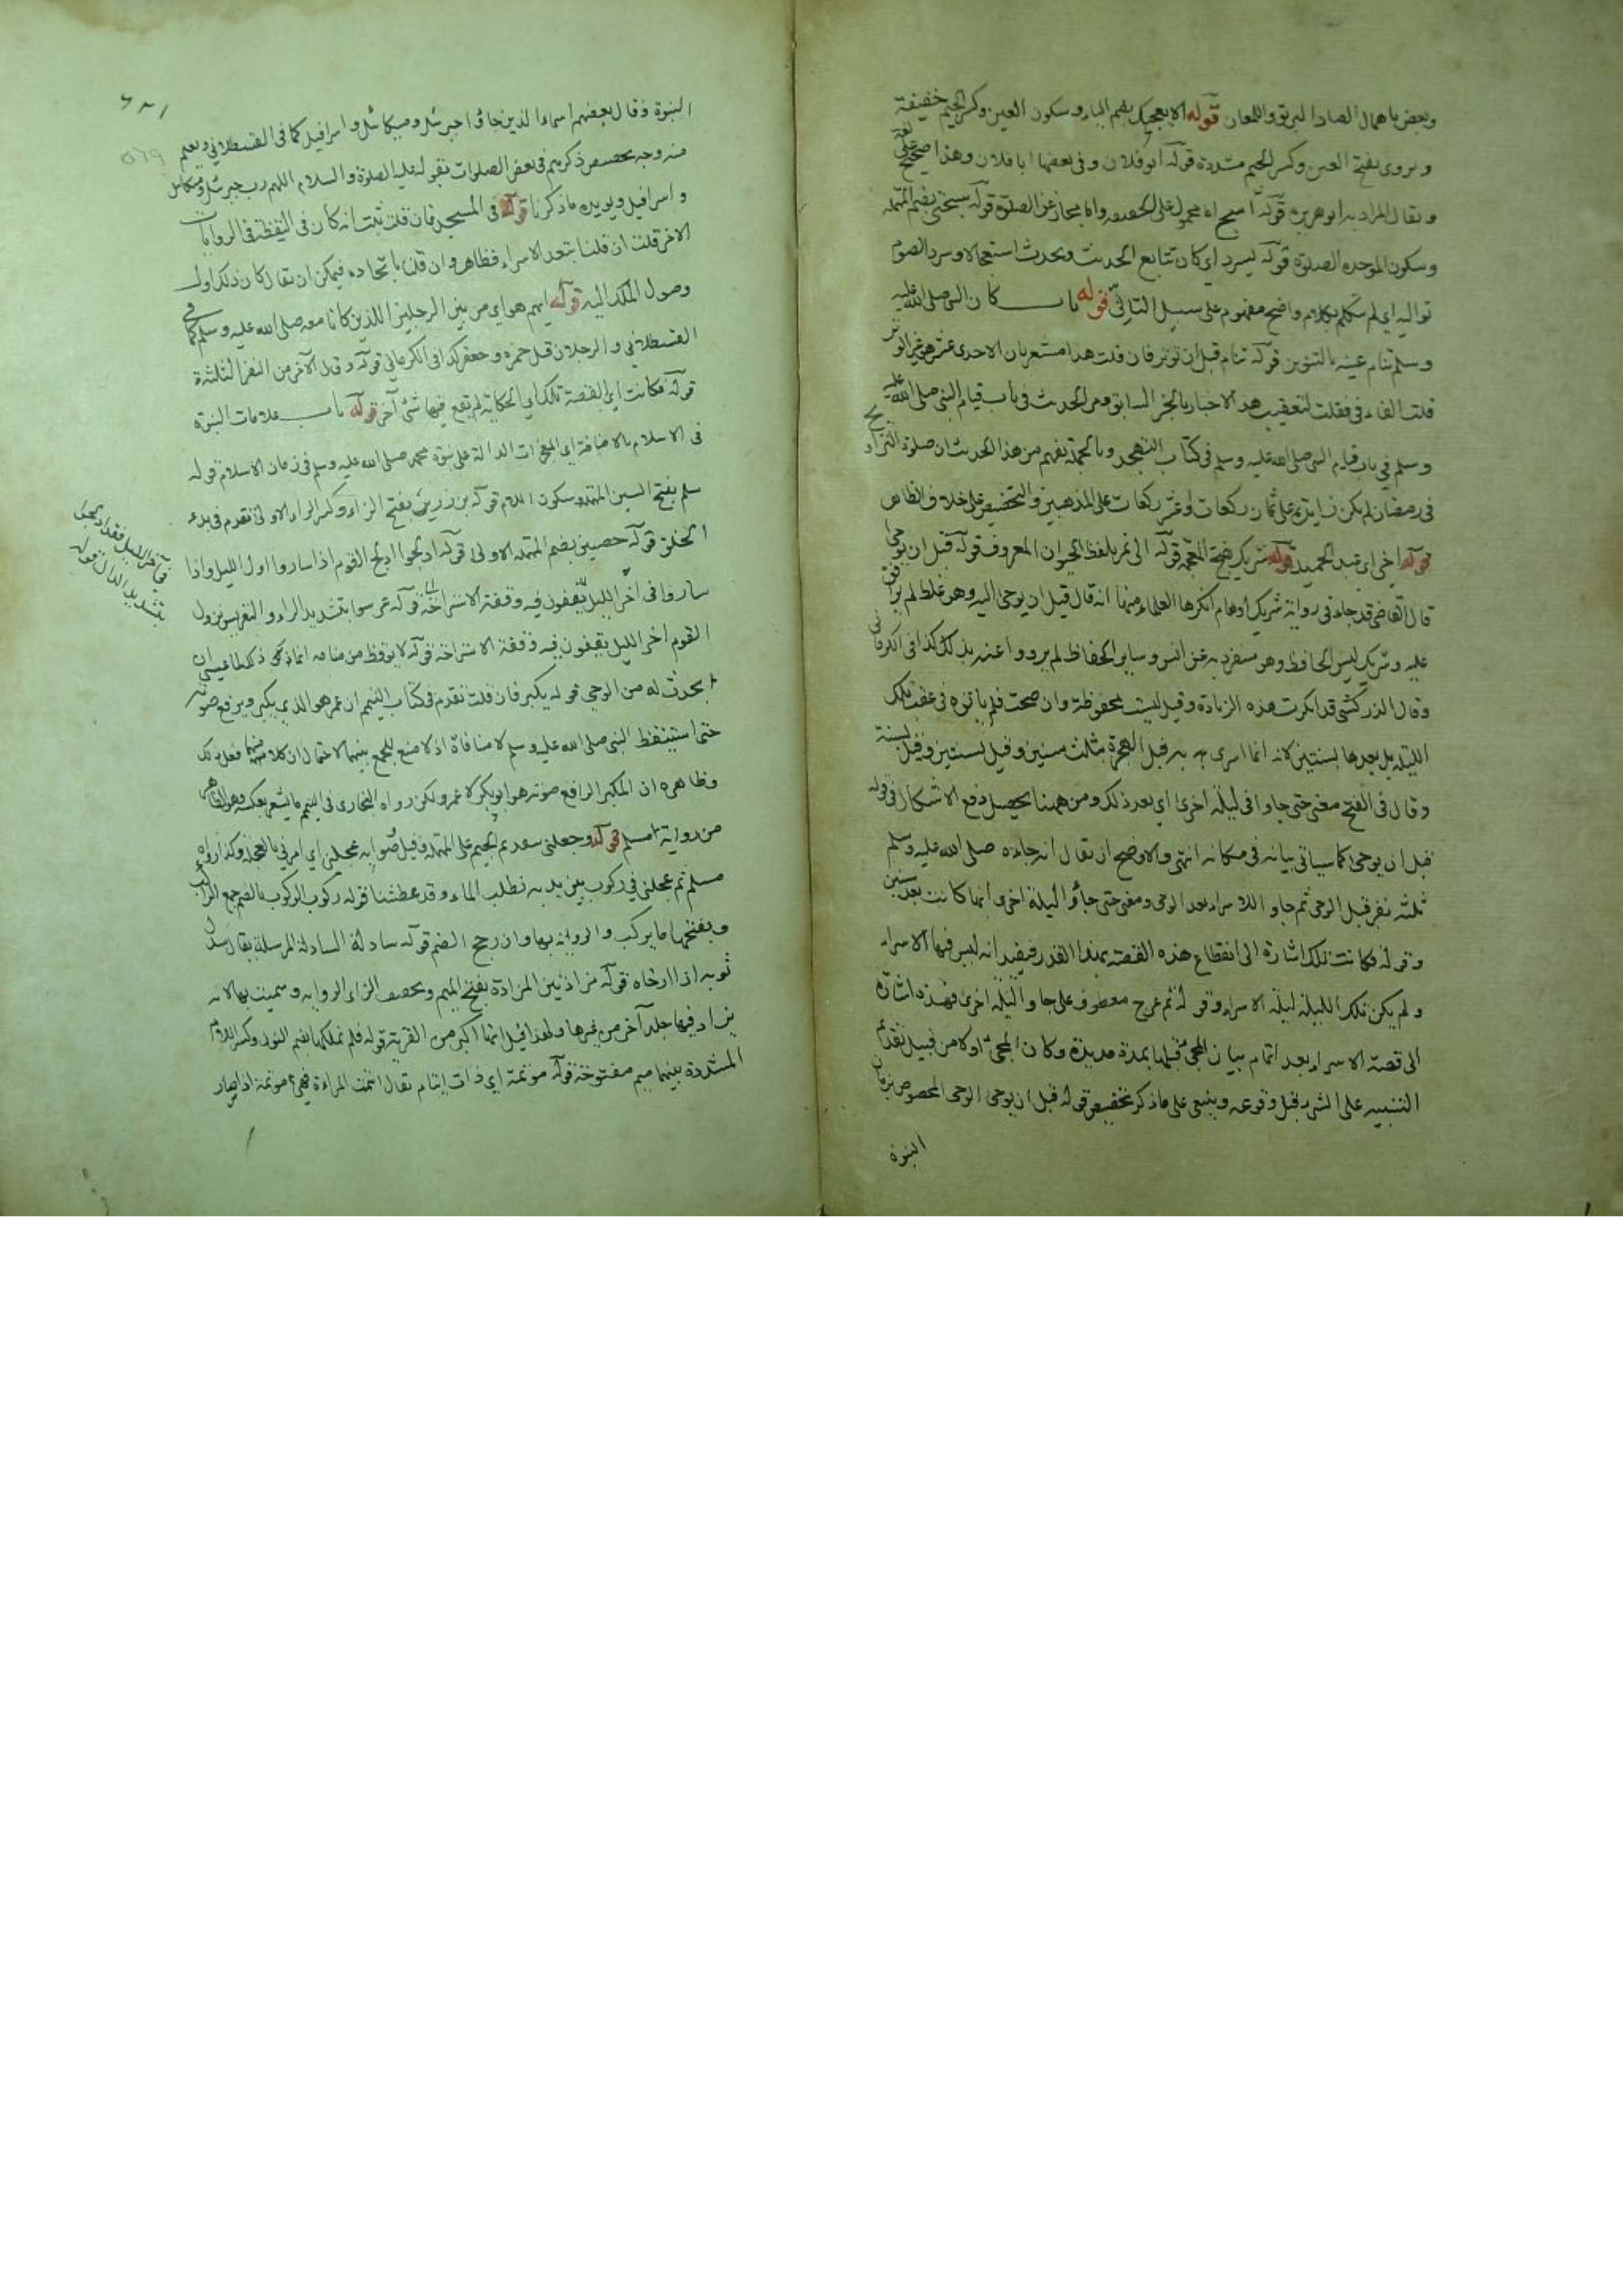 وبعض باهمال الصاد البريق واللمعان قوله الا يعجبك بضم الياء وسكون العين وكسر الجيم خفيفة
ويروى بفتح العين وكسر الجيم مشددة قوله ابو فلان وفي بعضها ابا فلان وهذا صحيح على لغة
ويقال المراد به ابو هريرة قوله اسبح اما محمول على الحقيقة واما مجاز عن الصلوة قوله سبحتي بضم المهملة
وسكون الموحدة الصلوة قوله ليسرد اي كان يتابع الحديث ويحدث استعجالا وسرد الصوم
تواليه اي لم يتكلم بكلام واضح مفهوم على سبيل التاني قوله باب كان النبي صلى الله عليه
وسلم تنام عينه بالتنوين قوله تنام قبل ان توتر فان قلت هذا مشعر بان الاحدى عشرة هي غير الوتر
قلت الفاء في فقلت لتعقيب هذا الاخبار بالخبر السابق ومر الحديث في باب قيام النبي صلى الله عليه
وسلم في باب قيام النبي صلى الله عليه وسلم في كتاب التهجد وبالجملة يفهم من هذا الحديث ان صلوة التراويح
في رمضان لم يكن زايدة على ثمان ركعات او عشر ركعات على المذهبين والتخصيص على خلاف الظاهر
قوله اخي اي عبد الحميد قوله شريك بفتح المعجمة قوله الى نمر بلفظ الحيوان المعروف قوله قبل ان يوحى
قال القاضي قد جاء في رواية شريك اوهام انكرها العلماء منها انه قال قبل ان يوحى اليه وهو غلط لم يوافق
عليه وشريك ليس الحافظ وهو منفرد به عن انس وساير الحفاظ لم يرووا عنه بذلك كذا في الكرماني
وقال الزركشي قد انكرت هذه الزيادة وقيل ليست بمحفوظة وان صحت فلم ياتوه في عقب تلك
الليلة بل بعدها بسنتين لانه انما اسرى به قبل الهجرة بثلث سنين وقيل بسنتين وقيل بسنة
وقال في الفتح معنى حتى جاوا في ليلة اخرى اي بعد ذلك ومن ههنا يحصل دفع الاشكال في قوله
قبل ان يوحى كما سياتي بيانه في مكانه انتهى والاوضح ان يقال انه جاءه صلى الله عليه وسلم
ثلثة نفر قبل الوحي ثم جاوا للاسراء بعد الوحي ومعنى حتى جاوا ليلة اخرى انما كانت بعد سنين
وقوله فكانت تلك اشارة الى انقطاع هذه القصة بهذا القدر فيفيد انه ليس فيها الاسراء
ولم يكن تلك الليلة ليلة الاسراء وقوله ثم عرج معطوف على جاوا ليلة اخرى فهذه اشارة
الى قصة الاسراء بعد اتمام بيان المجئ قبلها بمدة مديدة وكان المجئ اولا من قبيل تقدم
التنبيه على الشئ قبل وقوعه وينبغي على ما ذكر تخصيص قوله قبل ان يوحى الوحي المخصوص بزمان
النبوة
النبوة وقال بعضهم اسماء الذين جاؤا جبرئيل وميكائيل واسرافيل كما في القسطلاني ويعلم
منه وجه تخصيص ذكرهم في بعض الصلوات بقوله عليه الصلوة والسلام اللهم رب جبرئيل وميكائيل
واسرافيل ويويده ما ذكرنا قوله في المسجد فان قلت ثبت انه كان في اليقظة في الروايات
الاخر قلت ان قلنا بتعدد الاسراء فظاهر وان قلنا باتحاده فيمكن ان يقال كان ذلك اول
وصول الملك اليه قوله ايهم هو اي من بين الرجلين اللذين كانا معه صلى الله عليه وسلم كما في
القسطلاني والرجلان قيل حمزة وجعفر كذا في الكرماني قوله وقال الآخر من النفر الثلثة
قوله فكانت اي القصة تلك اي الحكاية لم تقع فيها شئ آخر قوله باب علامات النبوة
في الاسلام بالاضافة اي المعجزات الدالة على نبوة محمد صلى الله عليه وسلم في زمان الاسلام قوله
سلم بفتح السين المهملة وسكون اللام قوله بن زرير بفتح الزاء وكسر الراء الاولى تقدم في بدء
الخلق قوله حصين بضم المهملة الاولى قوله ادلجوا ادلج القوم اذا ساروا اول الليل واذا
ساروا في آخر الليل يقفون فيه وقفة الاستراحة قوله عرسوا بتشديد الراء والتعريس نزول
القوم اخر الليل يقفون فيه وقفة الاستراحة قوله لا يوقظ من منامه انما ذلك لما عيسى ان
يحدث له من الوحي قوله يكبر فان قلت تقدم في كتاب التيمم ان عمر هو الذي يكبر ويرفع صوته
حتى استيقظ النبي صلى الله عليه وسلم لا منافاة اذ لا منع للجمع بينهما لاحتمال ان كلا منهما فعل ذلك
وظاهره ان المكبر الرافع صوته هو ابو بكر لا عمر ولكن رواه البخاري في التيمم ما يشعر بعكسه وهو الظاهر
من رواية مسلم قوله وجعلني بتقديم الجيم على المهملة وقيل صوابه عجلني اي امرني بالعجلة وكذا رواه
مسلم ثم عجلني في ركوب بين يديه نطلب الماء وقد عطشنا قوله ركوب الركوب بالضم جمع الراكب
وبفتحها ما يركب والرواية بها وان رجح الضم قوله سادلة السادلة المرسلة يقال سدل
ثوبه اذا ارخاه قوله مزادتين المزادة بفتح الميم وبخفة الزاء الراوية وسميت بها لانه
يزاد فيها جلد آخر من غيرها ولهذا قيل انها اكبر من القربة قوله فلم نملكها بضم النون وكسر اللام
المشددة بينهما ميم مفتوحة قوله موتمة اي ذات ايتام يقال ايتمت المراءة فهي موتمة اذا صار
في آخر الليل فقد ادلجوا
بتشديد الدال قوله